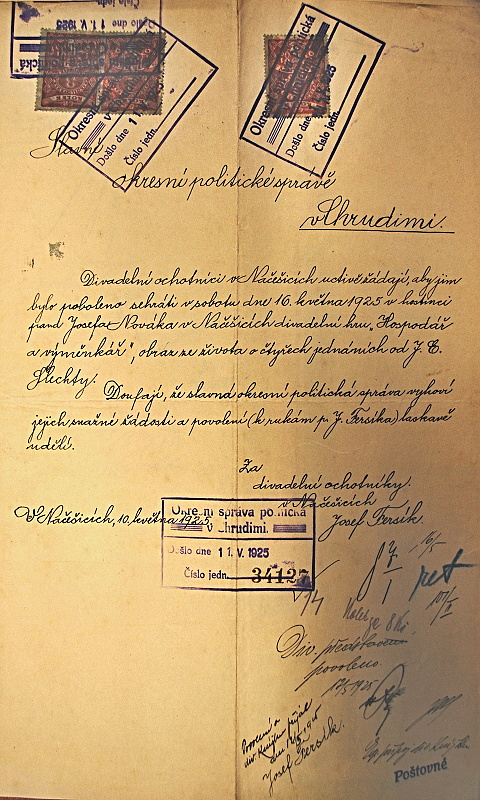 Číslo jedn.
Došlo dne 11.V.1925
Okresní
Došlo dne 11
Číslo jedn.
Okresní politická
Došlo dne 1925
Číslo jedn.
Slavné
okresní politické správě
v Chrudimi.
Divadelní ochotníci v Načešicích uctivě žádají, aby jim
bylo povoleno sehráti v sobotu dne 16. května 1925 v hostinci
pana Josefa Nováka v Načešicích divadelní hru „Hospodář
a výměnkář“, obraz ze života o čtyřech jednáních od J. E.
Šlechty.
Doufají, že slavná okresní politická správa vyhoví
jejich snažné žádosti a povolení (k rukám p. J. Fersíka) laskavě
udělí.
Za
divadelní ochotníky.
v Načešicích
V Načešicích, 10. května 1925.
Josef Fersík.
Okresní správa politická
v Chrudimi.
Došlo dne 11.V.1925
Číslo jedn. 34127
16/5
1/4
je 8 Kč
Div. představení
povoleno
12/5 1925
Povolení a
div. knížku přijal
dne 1925
Josef Fersík.
Poštovné